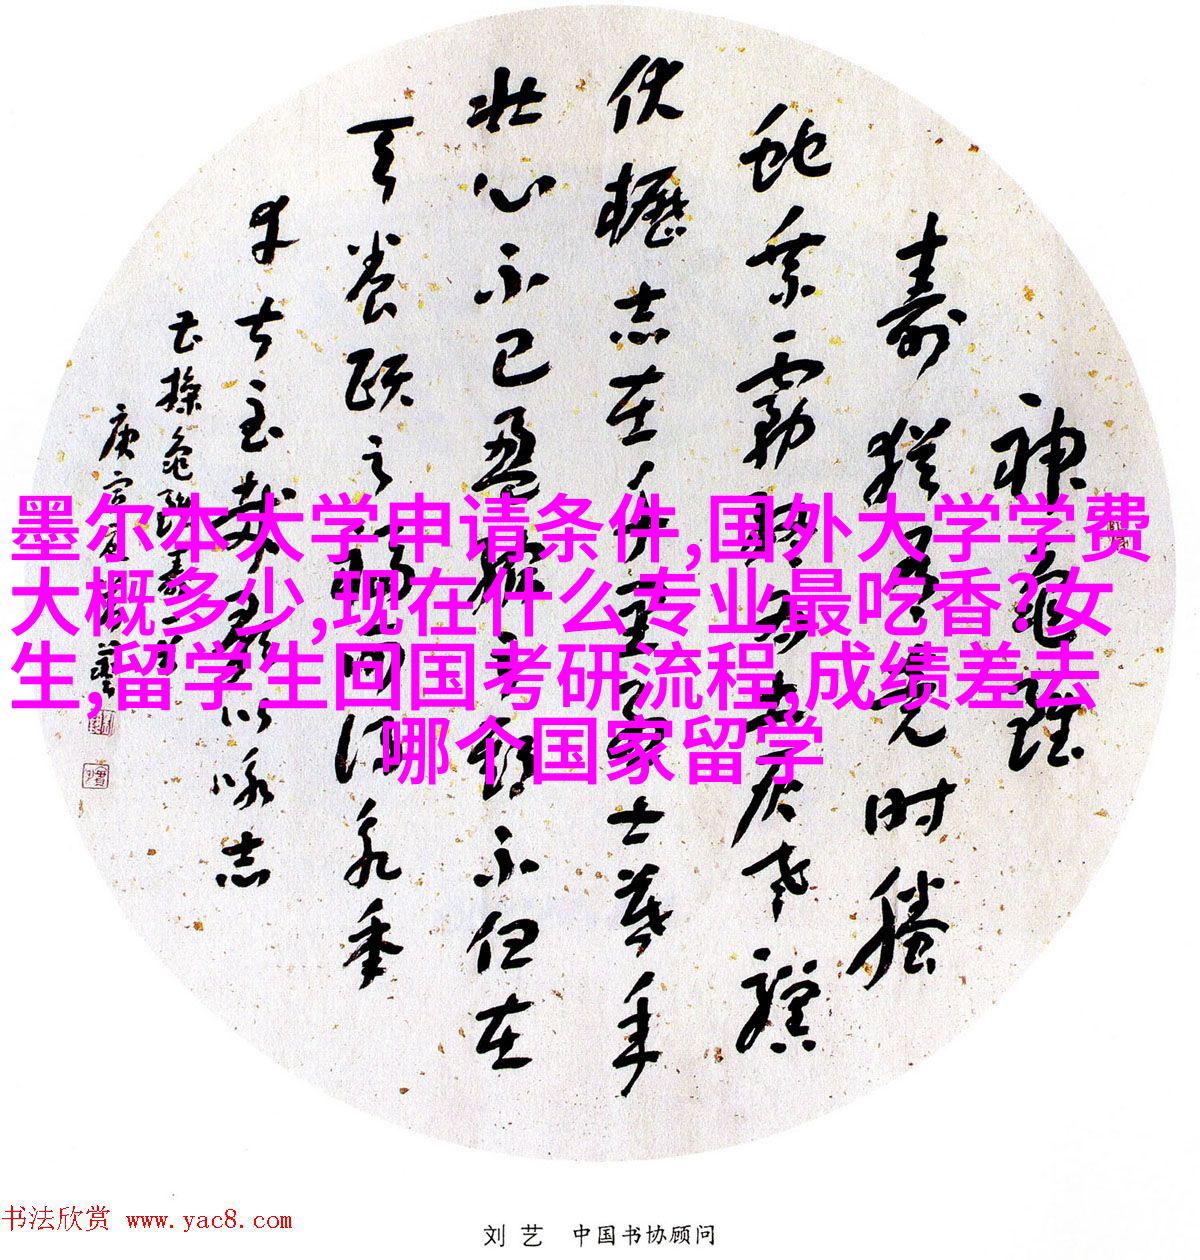 墨尔本大学申请条件,国外大学学费
大概多少,现在什么专业最吃香?女
生,留学生回国考研流程,成绩差去
哪个国家留学
神龟雖
寿猶有竟时騰
蛇乘霧終为土灰老驥
伏櫪志在千里烈士暮年
壮心不已盈縮之期不但在
天养颐之福可得永年
幸甚至哉歌以咏志
书法欣赏 www.yac8.com
刘艺 中国书协顾问